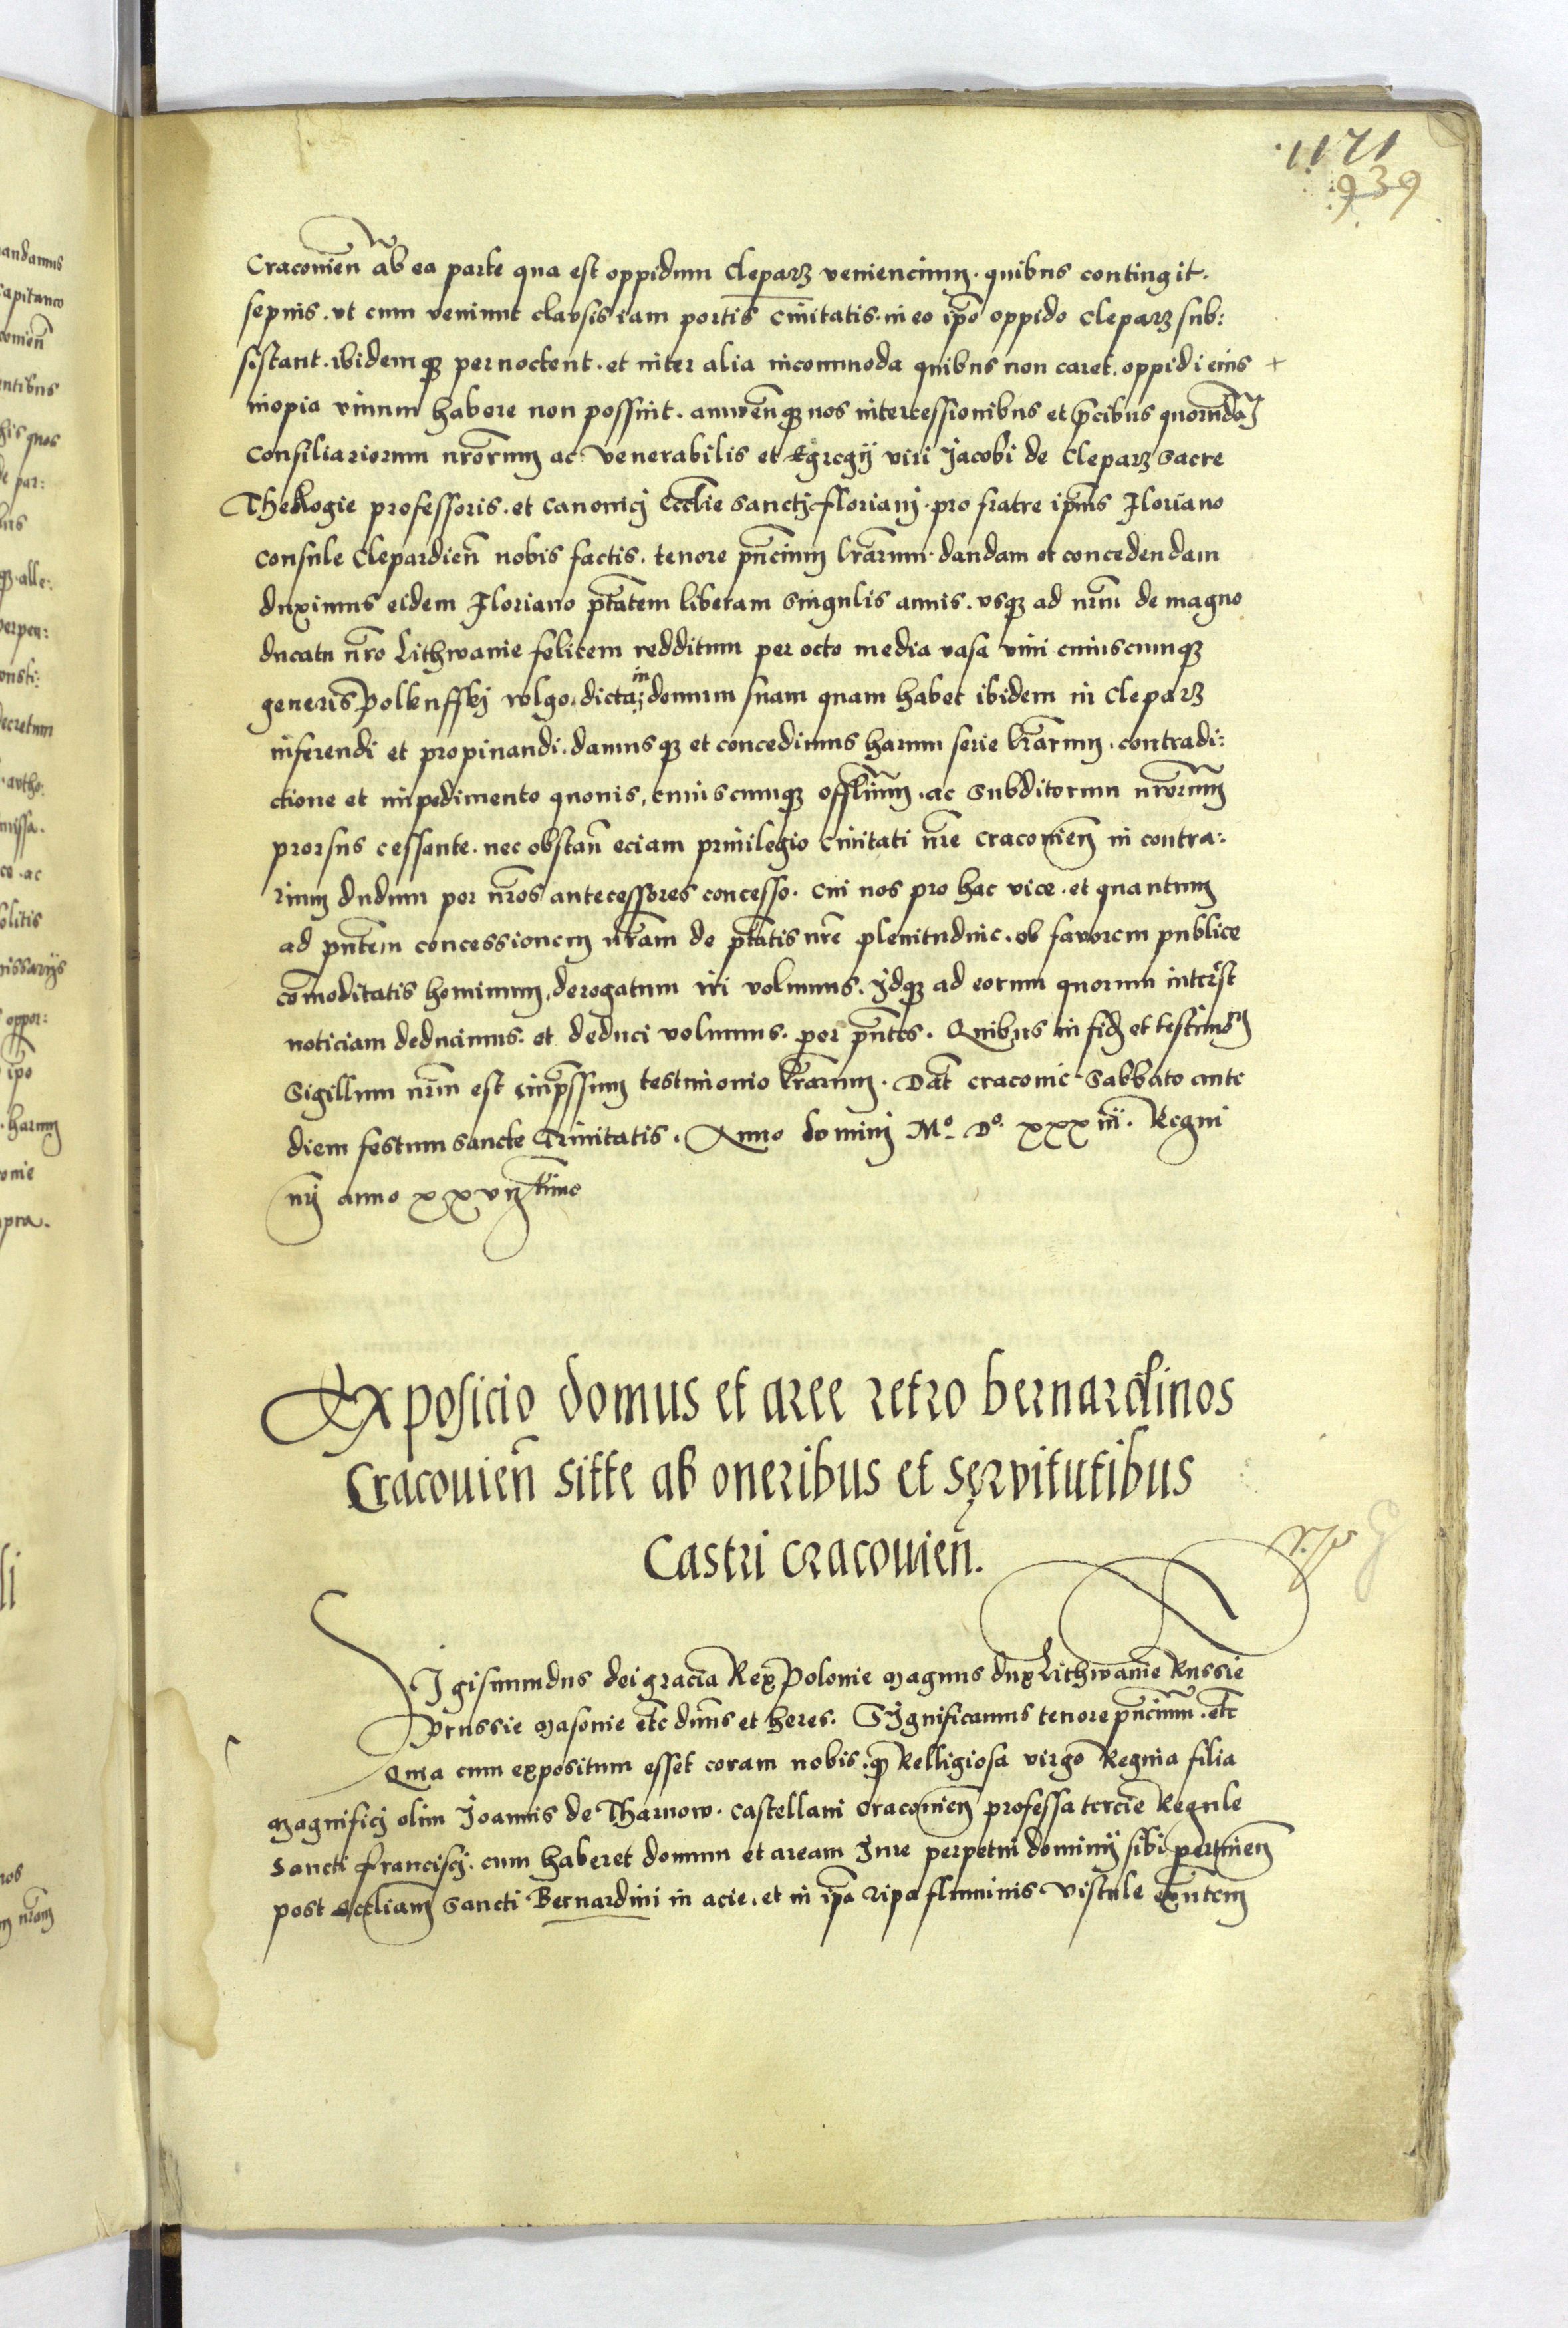 1171
939
Cracovien̄ ab ea parte qua est oppidum Cleparz veniencium. quibus contingit.
sepius. vt cum veniunt clausis iam portis Civitatis. in eo ip̄o oppido Cleparz sub:
sistant. ibidemq̨ pernoctent. et inter alia incommoda quibus non caret. oppidi eius +
inopia vinum habere non possint. annuen̄q̨ nos intercessionibus et p̄cibus quorundā
Consiliariorum nr̄orum ac Venerabilis et Egregij viri Jacobi de Cleparz Sacre
Theologie professoris. et Canonicj Eccl̄ie Sanctj Florianj. pro fratre ip̄ius Floriano
Consule Clepardien̄ nobis factis. tenore pn̄cium lr̄arum. dandam et concedendam
duximus eidem Floriano ptātem liberam Singulis annis. vsq̨ ad nr̄m de magno
ducatu nr̄o Lithwanie felicem redditum per octo media vasa vini cuiuscumq̨
generis Polkuffkj wlgo dicta in domum suam quam habet ibidem in Cleparz
inferendi et propinandi. damusq̨ et concedimus harum serie lr̄arum. contradi:
ctione et impedimento quouis, cuiuscumq̨ offi̅lium. ac Subditorum nr̄orum
prorsus cessante. nec obstan̄ eciam priuilegio Civitati nr̄e Cracovien̄ in contra:
rium dudum per nr̄os antecessores concesso. Cui nos pro hac vice. et quantum
ad pn̄tem concessionem nr̄am de ptātis nr̄e plenitudine. ob favorem publice
com̄oditatis hominum, derogatum iri volumus. Jdq̨ ad eorum quorum inter̄st
noticiam deducimus. et deduci volumus. per pn̄tes. Quibus in fid̄ et testimōn̄
Sigillum nr̄m est imp̄ssum testimonio lr̄arum. Dat̄ Cracovie Sabbato ante
diem festum Sancte Trinitatis. Anno dominj Mº. Dº. xxxiij. Regni
nr̄j anno xxvijtimo
Exposicio domus et aree retro bernardinos
Cracovien̄ sitte ab oneribus et servitutibus
Castri cracovien̄.
Sigismundus dei gracia Rex Polonie Magnus dux Lithwanie Russie
Prussie Masovie etc̄ dn̄us et heres. Significamus tenore pn̄cium. etc̄
Quia cum expositum esset coram nobis. q̄ Relligiosa virgo Regina filia
Magnificj olim Joannis de Tharnow. Castellani Cracovien̄ professa tercie Regule
Sancti Franciscj. cum haberet domum et aream Jure perpetui dominij sibi pertinen̄
post Eccl̄iam Sancti Bernardini in acie. et in ip̄a ripa fluminis Vistule exn̄tem